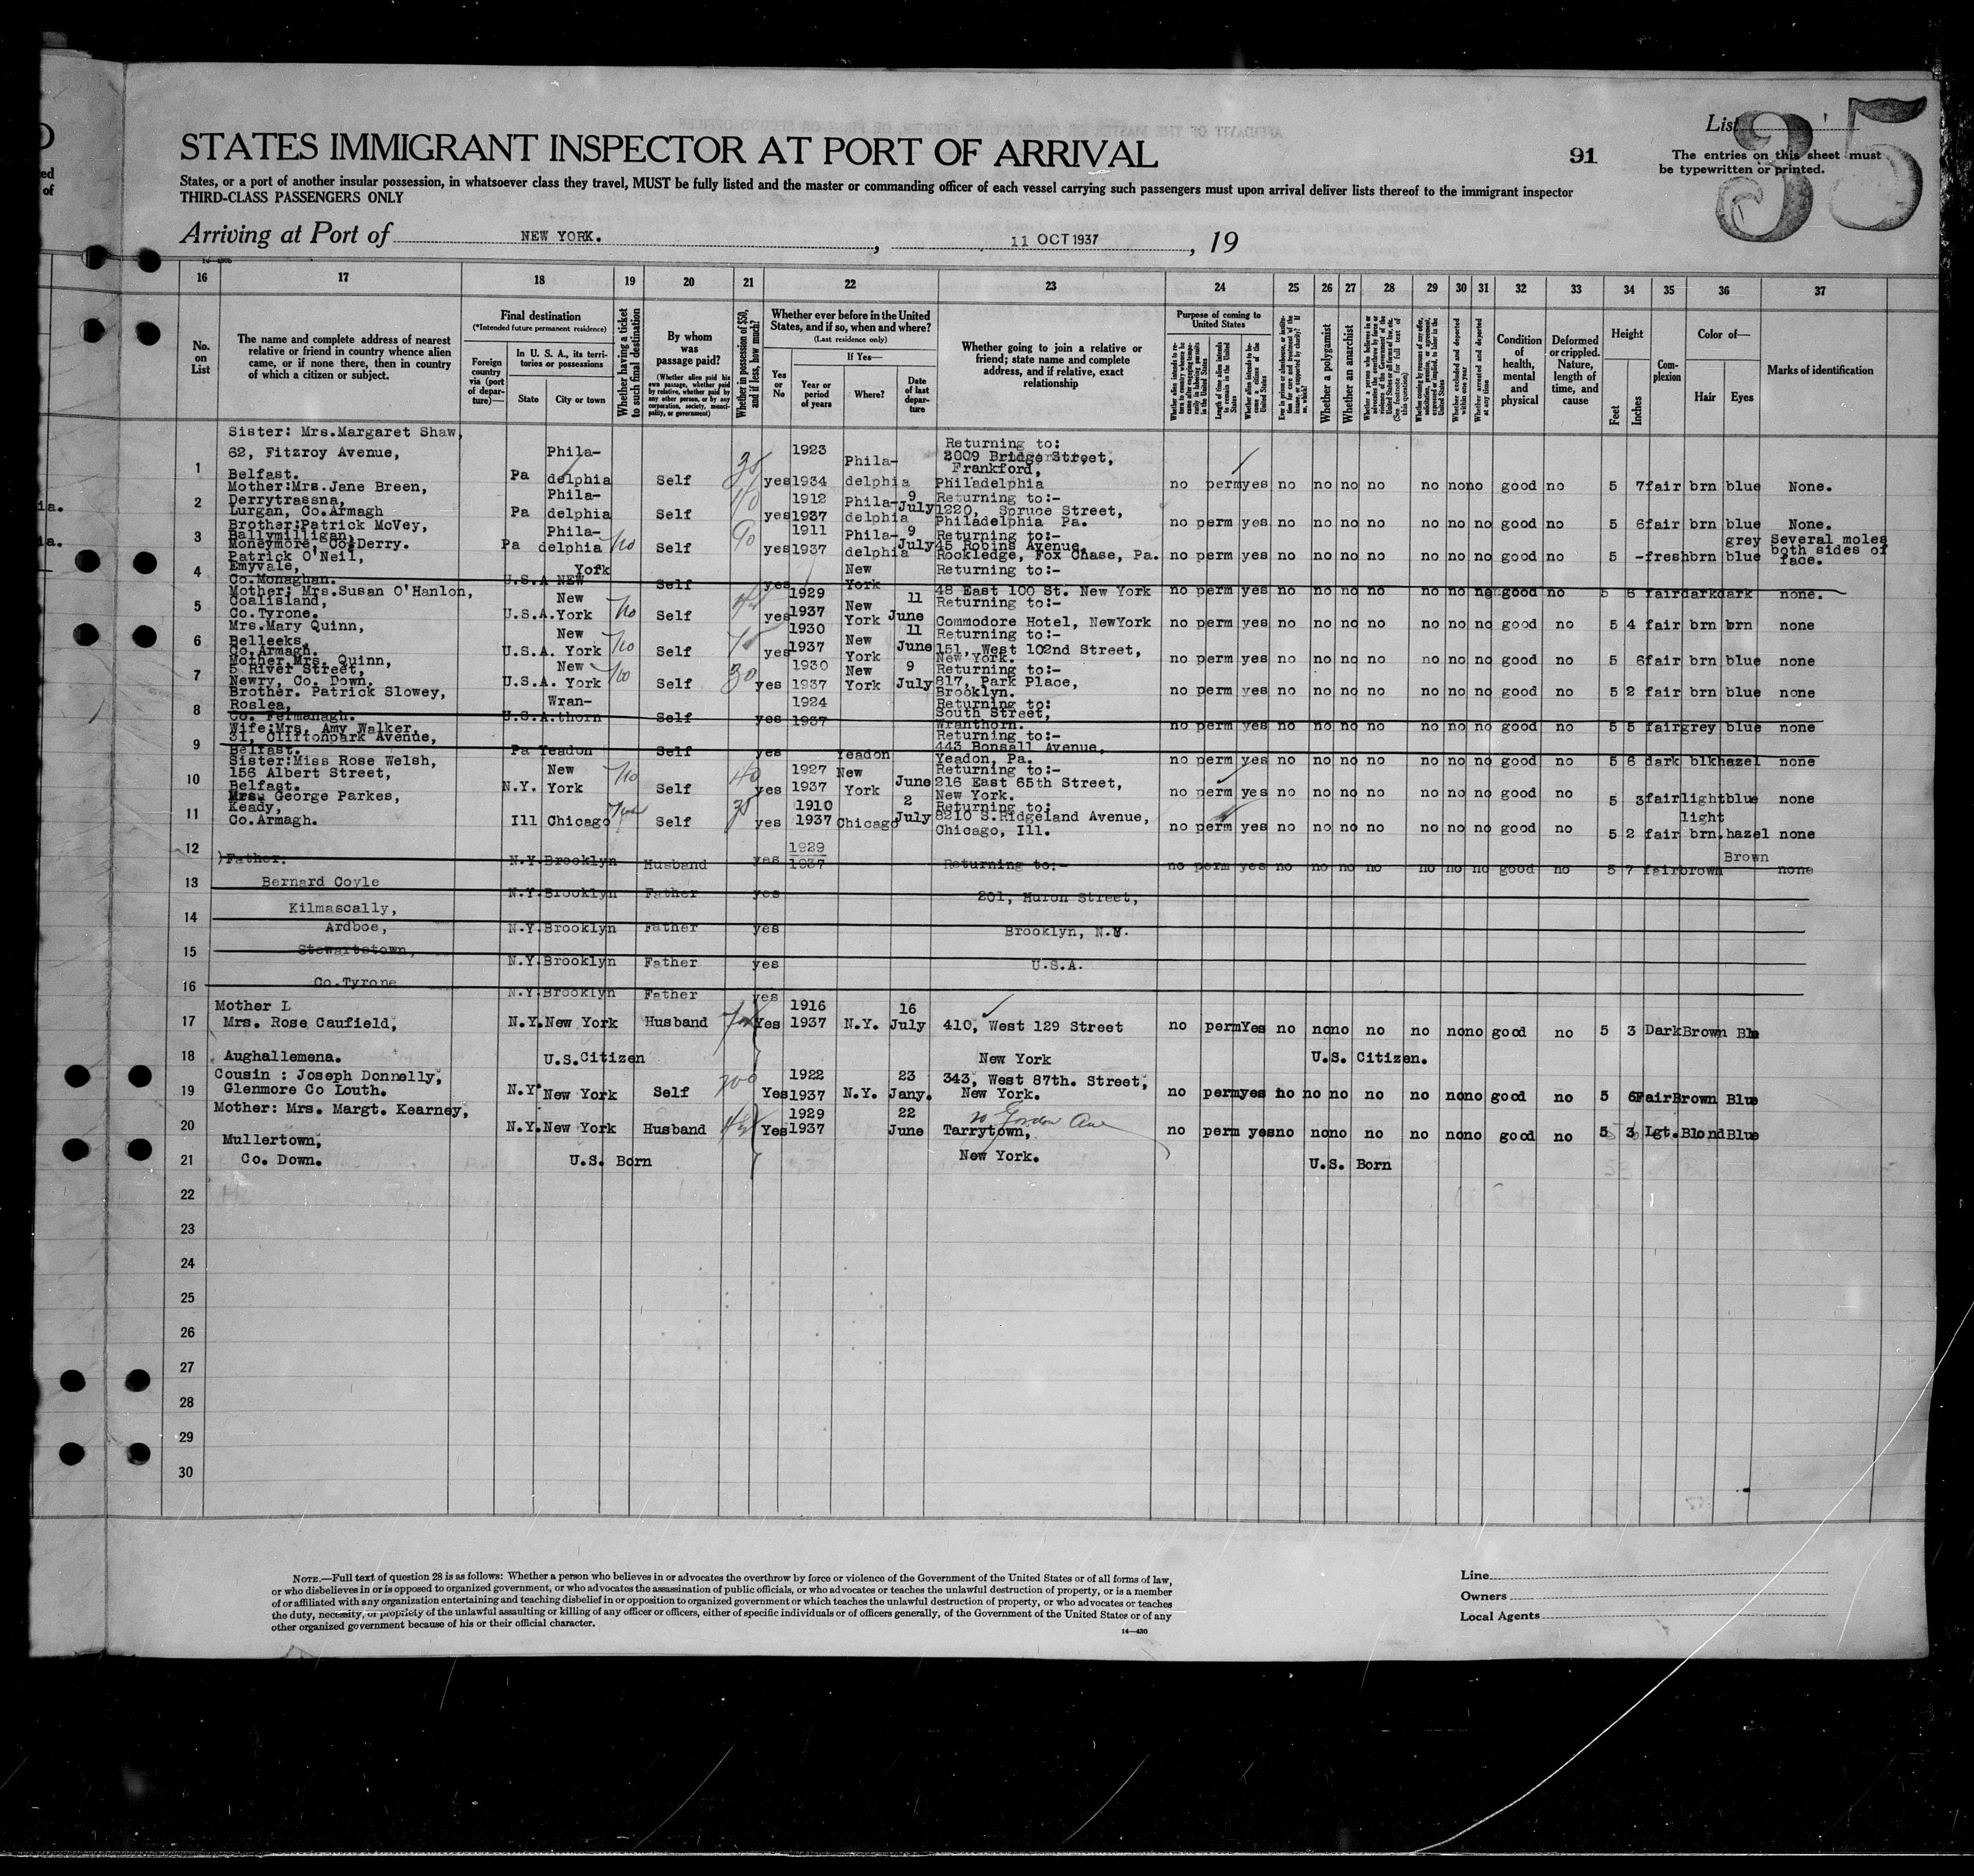 STATES IMMIGRANT INSPECTOR AT PORT OF ARRIVAL
91
List
35
The entries on this sheet must
be typewritten or printed.
States, or a port of another insular possession, in whatsoever class they travel, MUST be fully listed and the master or commanding officer of each vessel carrying such passengers must upon arrival deliver lists thereof to the immigrant inspector
THIRD-CLASS PASSENGERS ONLY
Arriving at Port of NEW YORK. , 11 OCT 1937 , 19
16 17 18 19 20 21 22 23 24 25 26 27 28 29 30 31 32 33 34 35 36 37
No. on List
The name and complete address of nearest
relative or friend in country whence alien
came, or if none there, then in country
of which a citizen or subject.
Final destination
(*Intended future permanent residence)
Foreign country via (port of departure)—
In U. S. A., its territories or possessions
State
City or town
Whether having a ticket to such final destination
By whom was passage paid?
(Whether alien paid his own passage, whether paid by relative, whether paid by any other person, or by any corporation, society, municipality, or government)
Whether in possession of $50, and if less, how much?
Whether ever before in the United States, and if so, when and where?
(Last residence only)
Yes or No
If Yes—
Year or period of years
Where?
Date of last departure
Whether going to join a relative or
friend; state name and complete
address, and if relative, exact
relationship
Purpose of coming to United States
Whether a polygamist
Whether an anarchist
Condition of health, mental and physical
Deformed or crippled. Nature, length of time, and cause
Height
Feet
Inches
Complexion
Color of—
Hair
Eyes
Marks of identification
1 Sister: Mrs.Margaret Shaw,
62, Fitzroy Avenue,
Belfast. Pa Phila-
delphia Self yes 1923
1934 Phila-
delphia Returning to:
2009 Bridge Street,
Frankford,
Philadelphia no perm yes no no no no no no no good no 5 7 fair brn blue None.
2 Mother:Mrs.Jane Breen,
Derrytrassna,
Lurgan, Co.Armagh Pa Phila-
delphia Self 40 yes 1912
1937 Phila-
delphia 9
July Returning to:-
1220, Spruce Street,
Philadelphia Pa. no perm yes no no no no no no no good no 5 6 fair brn blue None.
3 Brother:Patrick McVey,
Ballymilligan,
Moneymore, Co.Derry. Pa Phila-
delphia no Self 90 yes 1911
1937 Phila-
delphia 9
July Returning to:-
45 Robins Avenue,
Rockledge, Fox Chase, Pa. no perm yes no no no no no no no good no 5 - fresh brn grey
blue Several moles
both sides of
face.
4 Patrick O'Neil,
Emyvale,
Co.Monaghan. U.S.A NEW
York Self yes New
York Returning to:-
48 East 100 St. New York no perm yes no no no no no no no good no 5 6 fair dark dark none.
5 Mother: Mrs.Susan O'Hanlon,
Coalisland,
Co.Tyrone. U.S.A. New
York no Self yes 1929
1937 New
York 11
June Returning to:-
Commodore Hotel, NewYork no perm yes no no no no no no no good no 5 4 fair brn brn none
6 Mrs.Mary Quinn,
Belleeks,
Co.Armagh. U.S.A. New
York no Self yes 1930
1937 New
York 11
June Returning to:-
151, West 102nd Street,
New York. no perm yes no no no no no no no good no 5 6 fair brn blue none
7 Mother Mrs. Quinn,
5 River Street,
Newry, Co. Down. U.S.A. New
York no Self 30 yes 1930
1937 New
York 9
July Returning to:-
817, Park Place,
Brooklyn. no perm yes no no no no no no no good no 5 2 fair brn blue none
8 Brother. Patrick Slowey,
Roslea,
Co. Fermanagh. U.S.A. Wran-
thorn Self yes 1924
1937 Returning to:
South Street,
Wranthorn. no perm yes no no no no no no no good no 5 5 fair grey blue none
9 Wife:Mrs. Amy Walker,
31, Cliftonpark Avenue,
Belfast. Pa Yeadon Self yes Yeadon Returning to:-
443 Bonsall Avenue,
Yeadon, Pa. no perm yes no no no no no no no good no 5 6 dark blk hazel none
10 Sister:Miss Rose Welsh,
156 Albert Street,
Belfast. N.Y. New
York no Self 40 yes 1927
1937 New
York June Returning to:-
216 East 65th Street,
New York. no perm yes no no no no no no no good no 5 3 fair light blue none
11 Mrs. George Parkes,
Keady,
Co.Armagh. Ill Chicago Self yes 1910
1937 Chicago 2
July Returning to:
8210 S.Ridgeland Avenue,
Chicago, Ill. no perm yes no no no no no no no good no 5 2 fair light
brn. hazel none
12 Father: N.Y. Brooklyn Husband yes 1929
1937 Returning to:- no perm yes no no no no no no no good no 5 7 fair brown Brown none
13 Bernard Coyle N.Y. Brooklyn Father yes 201, Huron Street,
14 Kilmascally,
Ardboe, N.Y. Brooklyn Father yes Brooklyn, N.Y.
15 Stewartstown, N.Y. Brooklyn Father yes U.S.A.
16 Co.Tyrone N.Y. Brooklyn Father yes
17 Mother L
Mrs. Rose Caufield, N.Y. New York Husband Yes 1916
1937 N.Y. 16
July 410, West 129 Street no perm Yes no no no no no no no good no 5 3 Dark Brown Blu
18 Aughallemena. U.S. Citizen New York U.S. Citizen.
19 Cousin : Joseph Donnelly,
Glenmore Co Louth. N.Y. New York Self 200 Yes 1922
1937 N.Y. 23
Jany. 343, West 87th. Street,
New York. no perm yes no no no no no no no good no 5 6 Fair Brown Blue
20 Mother: Mrs. Margt. Kearney, N.Y. New York Husband Yes 1929
1937 22
June Tarrytown, no perm yes no no no no no no no good no 5 3 Lgt. Blond Blue
21 Mullertown,
Co. Down. U.S. Born New York. U.S. Born
22
23
24
25
26
27
28
29
30
NOTE.—Full text of question 28 is as follows: Whether a person who believes in or advocates the overthrow by force or violence of the Government of the United States or of all forms of law,
or who disbelieves in or is opposed to organized government, or who advocates the assassination of public officials, or who advocates or teaches the unlawful destruction of property, or is a member
of or affiliated with any organization entertaining and teaching disbelief in or opposition to organized government or which teaches the unlawful destruction of property, or who advocates or teaches
the duty, necessity, or propriety of the unlawful assaulting or killing of any officer or officers, either of specific individuals or of officers generally, of the Government of the United States or of any
other organized government because of his or their official character.
14—430
Line
Owners
Local Agents